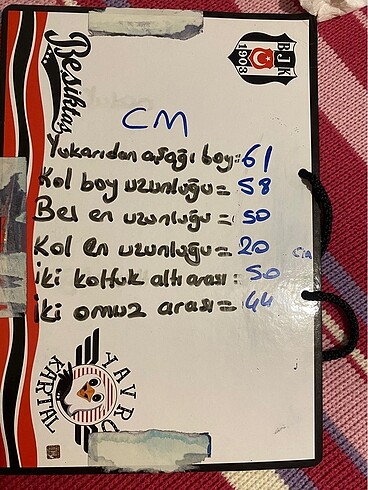 Beşiktaş
BJK
1903
CM
Yukarıdan aşağı boy: 61
Kol boy uzunluğu = 58
Bel en uzunluğu = 50
Kol en uzunluğu = 20 cm
İki koltuk altı arası: 50
İki omuz arası = 44
YAVRU
KARTAL